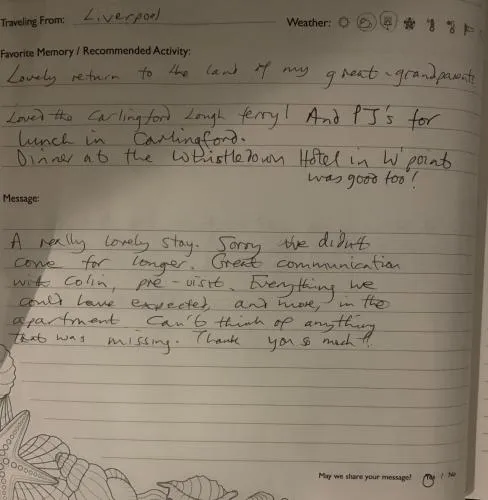 Traveling From: Liverpool
Weather:
Favorite Memory / Recommended Activity:
Lovely return to the land of my great-grandparents
Loved the Carlingford Lough ferry! And PJ's for
lunch in Carlingford.
Dinner at the Whistledown Hotel in W'point
was good too!
Message:
A really lovely stay. Sorry the didn't
come for longer. Great communication
with Colin, pre-visit. Everything we
could have expected, and more, in the
apartment Can't think of anything
that was missing. Thank you so much!!
May we share your message? Yes / No